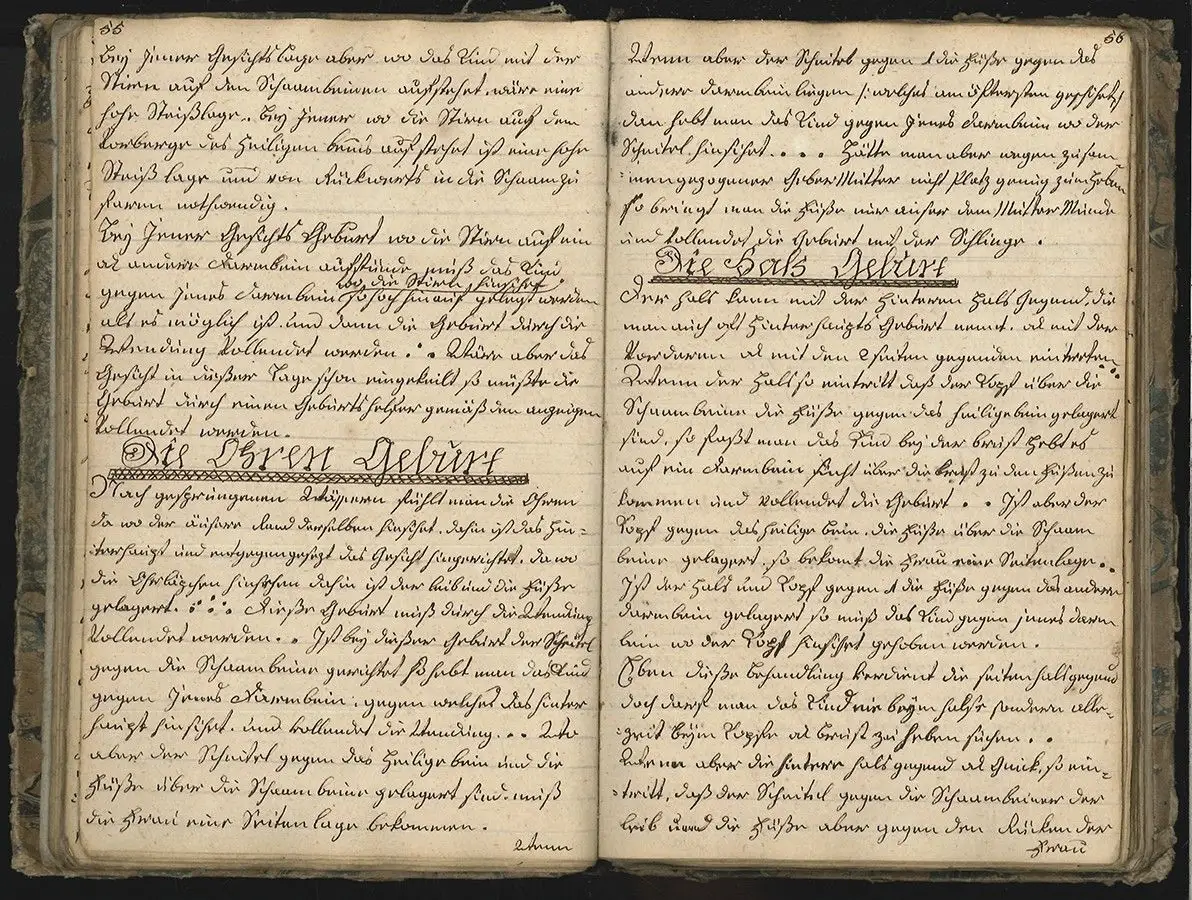 55
Bey Jener Gesichtslage aber wo das Kind mit der
Stirn auf den Schaambeinen aufstehet, wäre eine
hohe Steißlage.. Bey Jener wo die Stirn auf dem
Vorberge des Heiligen beins aufstehet ist eine hohe
Steiß lage und von Rückwerts in die Schaam zu
faren nothwendig.
Bey Jener Gesichts Geburt wo die Stirn auf ein
od andern Darmbein aufstünde, muß das Kind
wo die Stirn hinsihet
gegen Jenes Darmbein so hoch hinauf gelegt werden
als es möglich ist, und dann die Geburt durch die
Wendung Vollendet werden. . . Wäre aber das
Gesicht in dießer Lage schon eingekeilt so müßte die
Geburt durch einen Geburtshelfer gemäß den anzeigen
Vollendet werden.
Die Ohren Geburt
Nach gesprungenen Wässern fühlt man die Ohren
da wo der äusere Rand derselben hinsihet, dahin ist das Hin=
terhaupt und entgegengesezt das Gesicht hingerichtet, da wo
die Ohrläpchen hinsehen dahin ist der leib und die Füße
gelagert. . . . Dieße Geburt muß durch die Wendung
Vollendet werden. . Ist bey dießer Geburt der Scheitel
gegen die Schaambeine gerichtet so hebt man das Kind
gegen Jenes Darmbein, gegen welches das hinter
haupt hinsihet, und vollendet die Wendung. . . Wo
aber der Scheitel gegen das Heilige bein und die
Füße über die Schaambeine gelagert sind, muß
die Frau eine Seitenlage bekommen.
Wenn
56
Wenn aber der Scheitel gegen 1 die Füße gegen das
andere Darmbein liegen /: welches am öftersten geschihet /
dan hebt man das Kind gegen Jenes Darmbein wo der
Scheitel hinsihet. . . . Hätte man aber wegen zusam=
=mengezogener GeberMutter nicht Platz genug zum Heben
so bringt man die Füße nur ausser dem Mutter Munde
und vollendet die Geburt mit der Schlinge.
Die Hals Geburt
Der Hals kann mit der Hinteren Hals Gegend, die
man auch oft Hinterhaupts Geburt nennt, od mit der
Vorderen od mit den 2 seiten gegenden eintretten..
Wenn der Hals so eintritt daß der Kopf über die
Schaambeine die Füße gegen das heiligebein gelagert
sind, so faßt man das Kind bey der brust hebt es
auf ein Darmbein sucht über die brust zu den Füßen zu
kommen und vollendet die Geburt . . Ist aber der
Kopf gegen das heilige bein, die Füße über die Schaam
beine gelagert, so bekomt die Frau eine Seitenlage..
Ist der Hals und Kopf gegen 1 die Füße gegen das andere
darmbein gelagert so muß das Kind gegen jenes darm
bein wo der Kopf hinsihet gehoben werden.
Eben dieße behandlung verdient die seitenhalsgegend
doch darf man das Kind nie beym halse sondern alle=
=zeit beym Kopfe od brust zu heben suchen. .
Wenn aber die hintere halsgegend od Gnick, so ein=
=tritt, daß der Scheitel gegen die Schaambeine der
leib und die Füße aber gegen den Rücken der
Frau